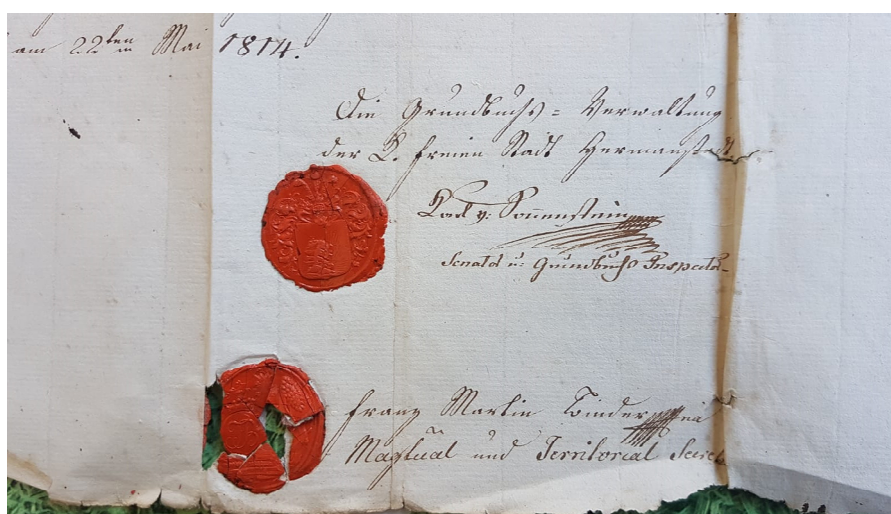 am 22ten Mai 1814.
Die Grundbuchs = Verwaltung
der K. freien Stadt Hermanstadt
Karl v: Sonnenstein
Senator u: Grundbuchs Inspector
Franz Martin
und Territorial Secret